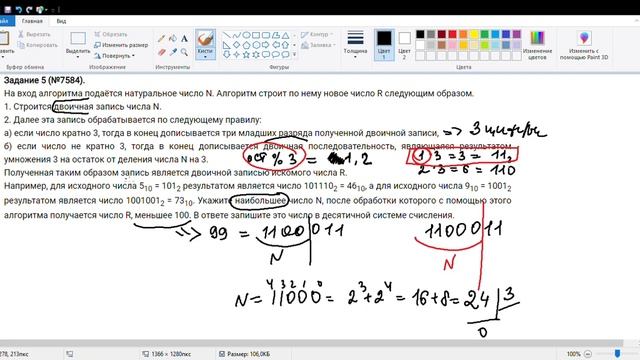 Вырезать
Обрезать
Изменить размер
Повернуть
Изображение
Кисти
Инструменты
Контур
Заливка
Фигуры
Толщина
Цвет 1
Цвет 2
Цвета
Изменение цветов
Изменить с помощью Paint 3D
Задание 5 (№7584).
На вход алгоритма подаётся натуральное число N. Алгоритм строит по нему новое число R следующим образом.
1. Строится двоичная запись числа N.
2. Далее эта запись обрабатывается по следующему правилу:
а) если число кратно 3, тогда в конец дописывается три младших разряда полученной двоичной записи,
б) если число не кратно 3, тогда в конец дописывается двоичная последовательность, являющаяся результатом
умножения 3 на остаток от деления числа N на 3.
Полученная таким образом запись является двоичной записью искомого числа R.
Например, для исходного числа 5₁₀ = 101₂ результатом является число 101110₂ = 46₁₀, а для исходного числа 9₁₀ = 1001₂
результатом является число 1001001₂ = 73₁₀. Укажите наибольшее число N, после обработки которого с помощью этого
алгоритма получается число R, меньшее 100. В ответе запишите это число в десятичной системе счисления.
% 3 = 1, 2
1·3 = 3 = 11₂
2·3 = 6 = 110
99 = 1100011
1100011
N
N
N = 11000 = 2³ + 2⁴ = 16 + 8 = 24 | 3
4 3 2 1 0
0
278, 213пкс
1366 × 1280пкс
Размер: 106,0КБ
100%